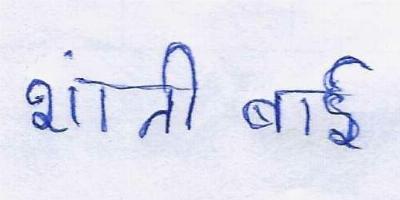 शांती बाई